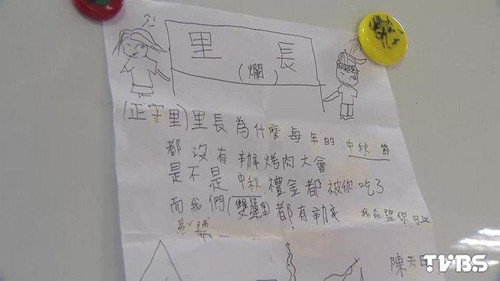 里長
(爛)
(正守里)里長為什麼每年的中秋節
都沒有辦烤肉大會
是不是中秋禮金都被你吃了
而我們(雙園里)都有
陳天
TVBS